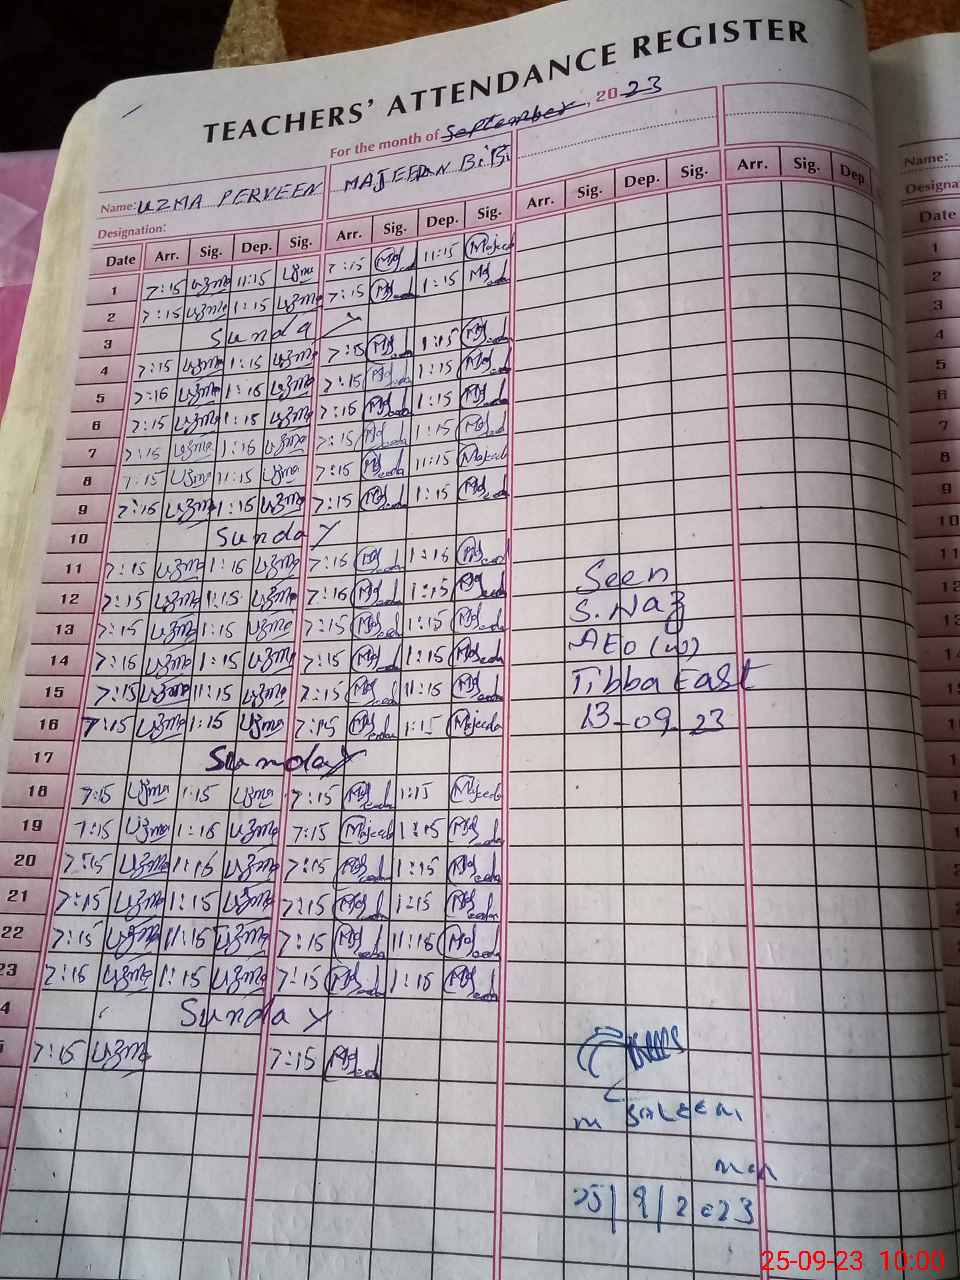 TEACHERS' ATTENDANCE REGISTER
For the month of September, 2023
Name: UZMA PERVEEN MAJEEDAN BiBi
Designation:
Date Arr. Sig. Dep. Sig. Arr. Sig. Dep. Sig. Arr. Sig. Dep. Sig. Arr. Sig. Dep
1 7:15 uzma 11:15 uzma 7:15 11:15 Majeed
2 7:15 uzma 1:15 uzma 7:15 1:15
3 Sunday
4 7:15 uzma 1:15 uzma 7:15 1:15
5 7:16 uzma 1:16 uzma 7:15 1:15
6 7:15 uzma 1:15 uzma 7:15 1:15
7 7:15 uzma 1:16 uzma 7:15 1:15
8 7:15 uzma 11:15 uzma 7:15 11:15
9 7:15 uzma 1:15 uzma 7:15 1:15
10 Sunday
11 7:15 uzma 1:16 uzma 7:16 1:16
12 7:15 uzma 1:15 uzma 7:16 1:15
13 7:15 uzma 1:15 uzma 7:15 1:15
14 7:16 uzma 1:15 uzma 7:15 1:15
15 7:15 uzma 11:15 uzma 7:15 11:15
16 7:15 uzma 1:15 uzma 7:15 1:15 Majeeda
17 Sunday
18 7:15 uzma 1:15 uzma 7:15 1:15 Majeeda
19 7:15 uzma 1:16 uzma 7:15 Majeeda 1:15
20 7:15 uzma 1:15 uzma 7:15 1:15
21 7:15 uzma 1:15 uzma 7:15 1:15
22 7:15 uzma 11:16 uzma 7:15 11:16
23 7:16 uzma 1:15 uzma 7:15 1:16
4 Sunday
7:15 uzma 7:15
Seen
S. Naz
AEO (w)
Tibba East
13-09-23
m SALEEM
25/9/2023
Name:
Designa
Date
1
2
3
4
5
6
7
8
9
10
11
12
25-09-23 10:00